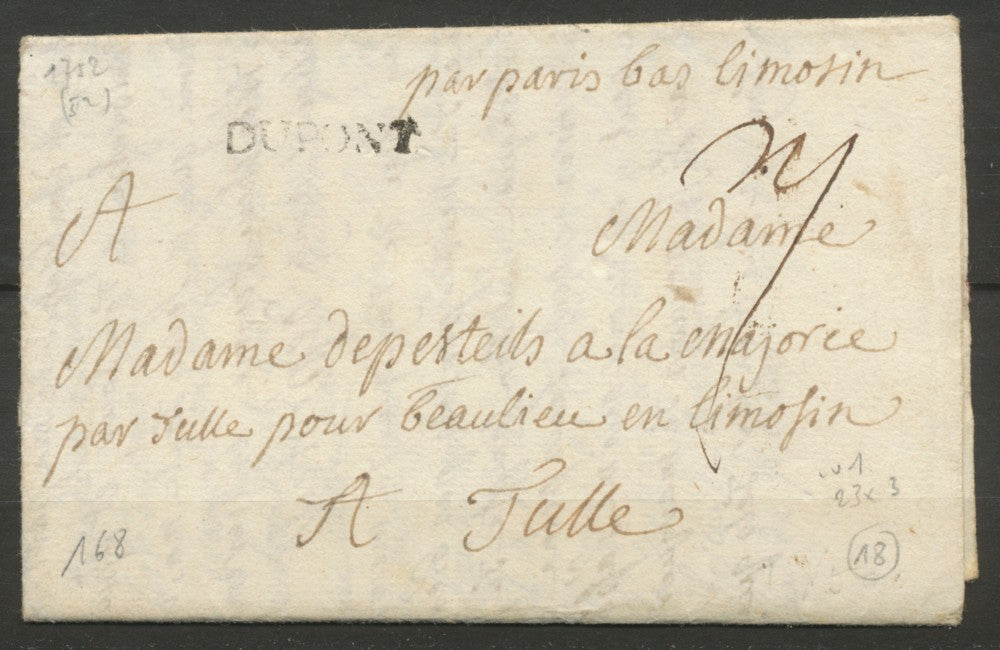 1752
(52)
par paris bas limosin
DUPONT
A Madame
Madame depesteils a la majorie
par Tulle pour beaulieu en limosin
A Tulle
23x3
168
18